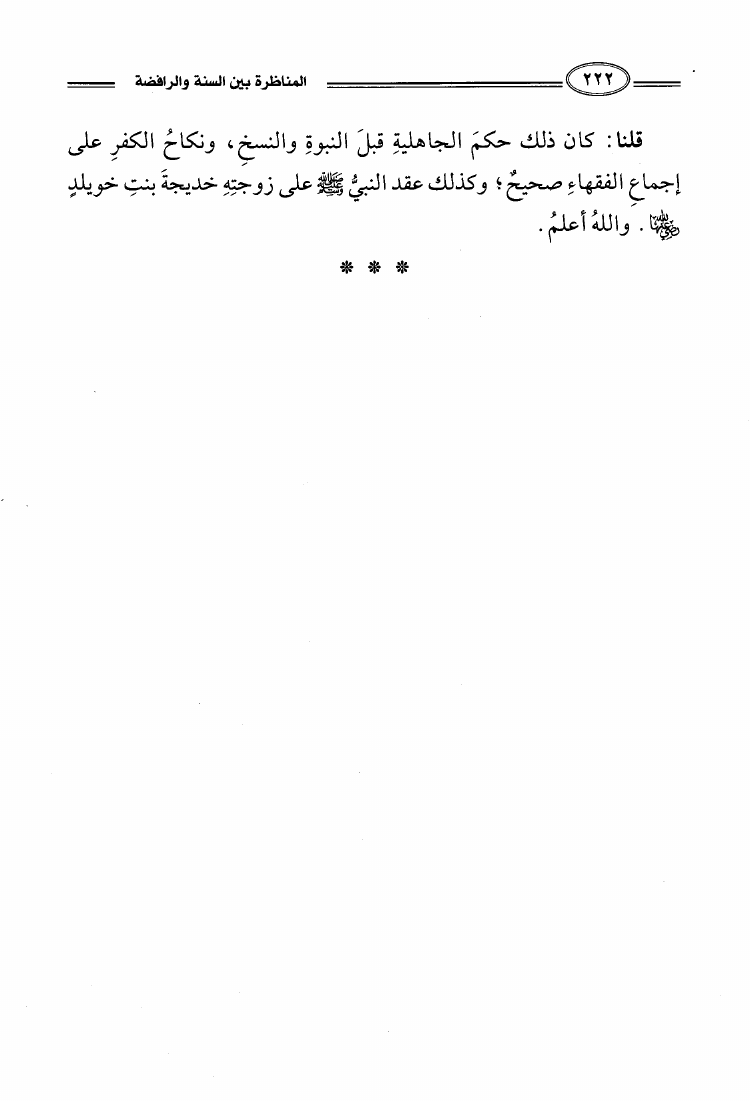 ٢٢٢ المناظرة بين السنة والرافضة
قلنا: كان ذلك حكمَ الجاهليةِ قبلَ النبوةِ والنسخِ، ونكاحُ الكفرِ على
إجماعِ الفقهاءِ صحيحٌ؛ وكذلك عقد النبيُّ ﷺ على زوجتِهِ خديجةَ بنتِ خويلدٍ
رضي الله عنها. واللهُ أعلمُ.
* * *